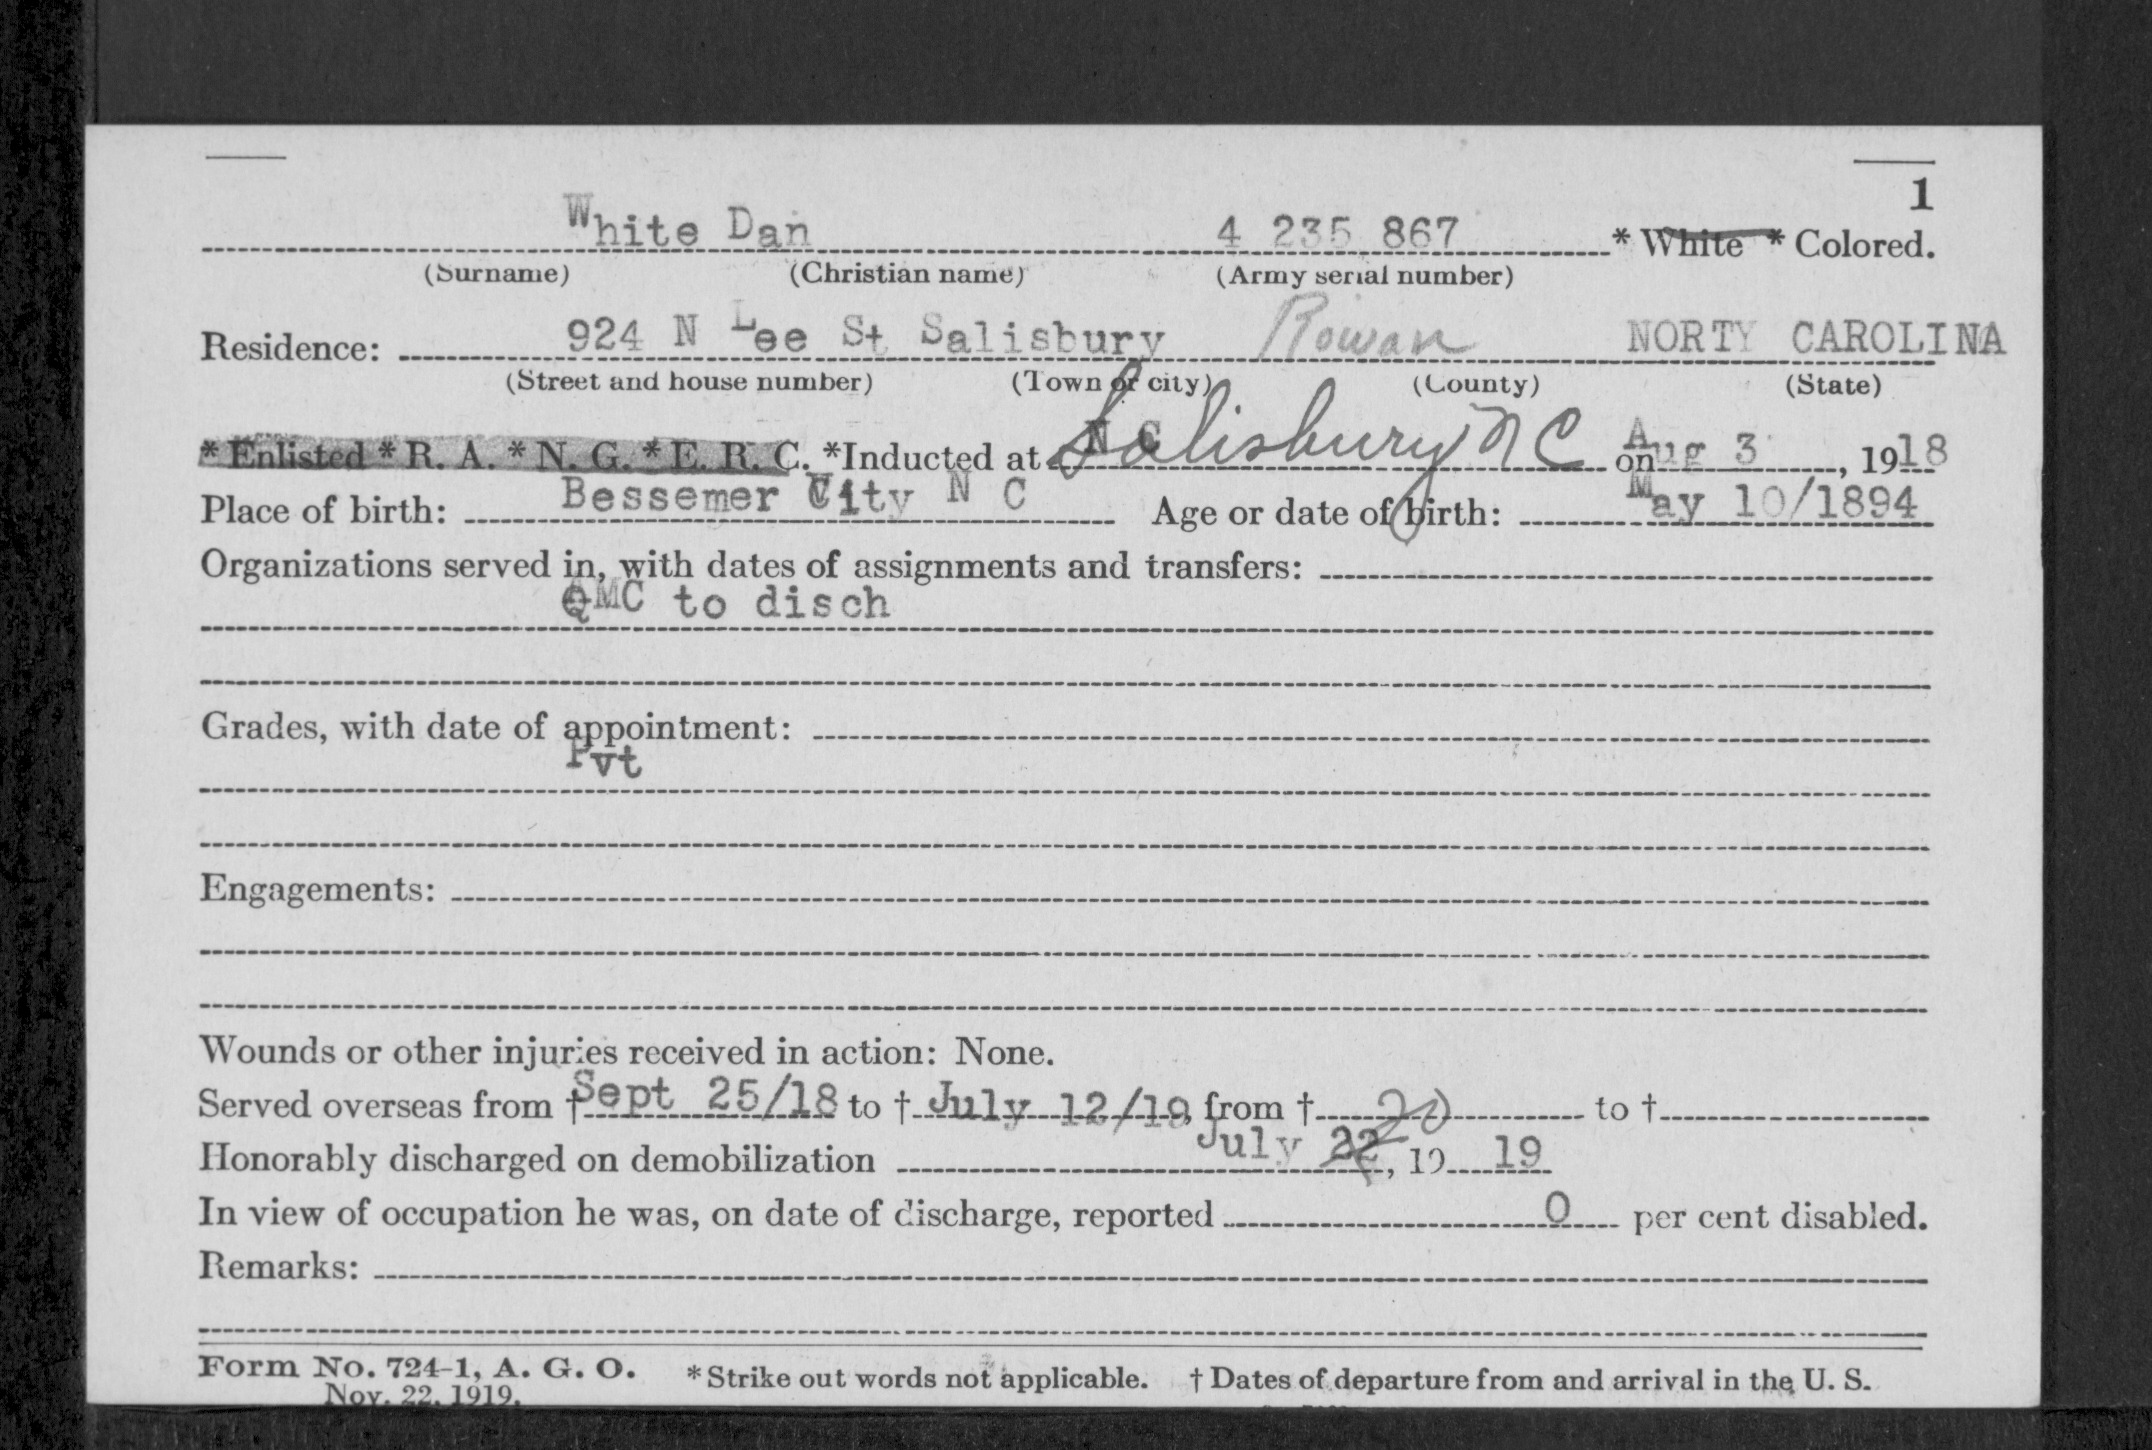 1
White Dan 4 235 867 * White * Colored.
(Surname) (Christian name) (Army serial number)
Residence: 924 N Lee St Salisbury Rowan NORTY CAROLINA
(Street and house number) (Town or city) (County) (State)
* Enlisted * R. A. * N. G. * E. R. C. *Inducted at N C Salisbury N C on Aug 3, 1918
Place of birth: Bessemer City N C Age or date of birth: May 10/1894
Organizations served in, with dates of assignments and transfers:
QMC to disch
Grades, with date of appointment:
Pvt
Engagements:
Wounds or other injuries received in action: None.
Served overseas from † Sept 25/18 to † July 12/19, from † to †
Honorably discharged on demobilization July 22 20, 19 19
In view of occupation he was, on date of discharge, reported 0 per cent disabled.
Remarks:
Form No. 724-1, A. G. O. * Strike out words not applicable. † Dates of departure from and arrival in the U. S.
Nov. 22, 1919.